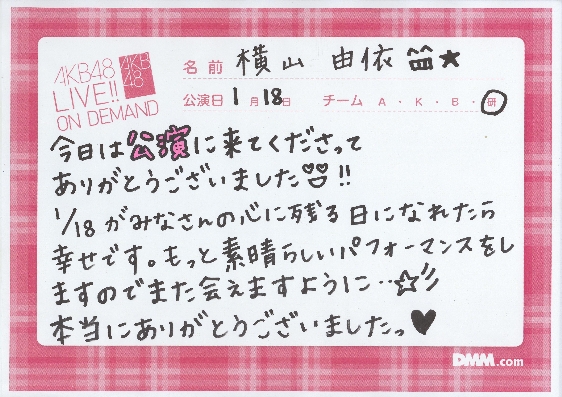 AKB48
LIVE!!
ON DEMAND
AKB
48
名前 横山 由依 ★
公演日 1月18日 チーム A・K・B・研
今日は公演に来てくださって
ありがとうございました!!
1/18がみなさんの心に残る日になれたら
幸せです。もっと素晴らしいパフォーマンスをし
ますのでまた会えますように‥☆彡
本当にありがとうございましたっ♥
DMM.com